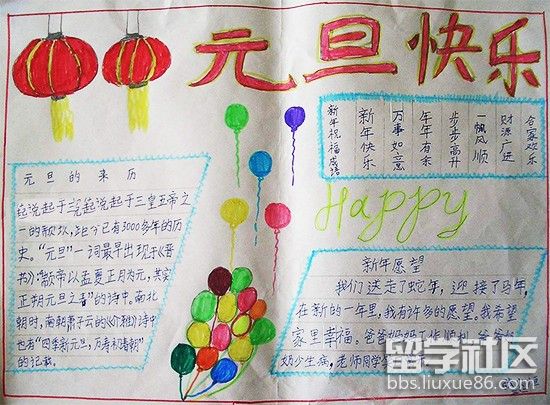 元旦快乐
新年祝福成语
新年快乐
万事如意
年年有余
步步高升
一帆风顺
财源广进
合家欢乐
元旦的来历
起说起于三皇五帝之
一的颛顼,距今已有3000多年的历
史。“元旦”一词最早出现于《晋
书》:“颛帝以孟夏正月为元,其实
正朔元旦之春”的诗中。南北
朝时,南朝萧子云的《介雅》诗中
也有“四季新元旦,万寿初春朝”
的记载。
Happy
新年愿望
我们送走了蛇年,迎接了马年,
在新的一年里,我有许多的愿望。我希望
家里幸福。爸爸妈妈工作顺利,爷爷
奶少生病,老师同学
留学社区
bbs.liuxue86.com